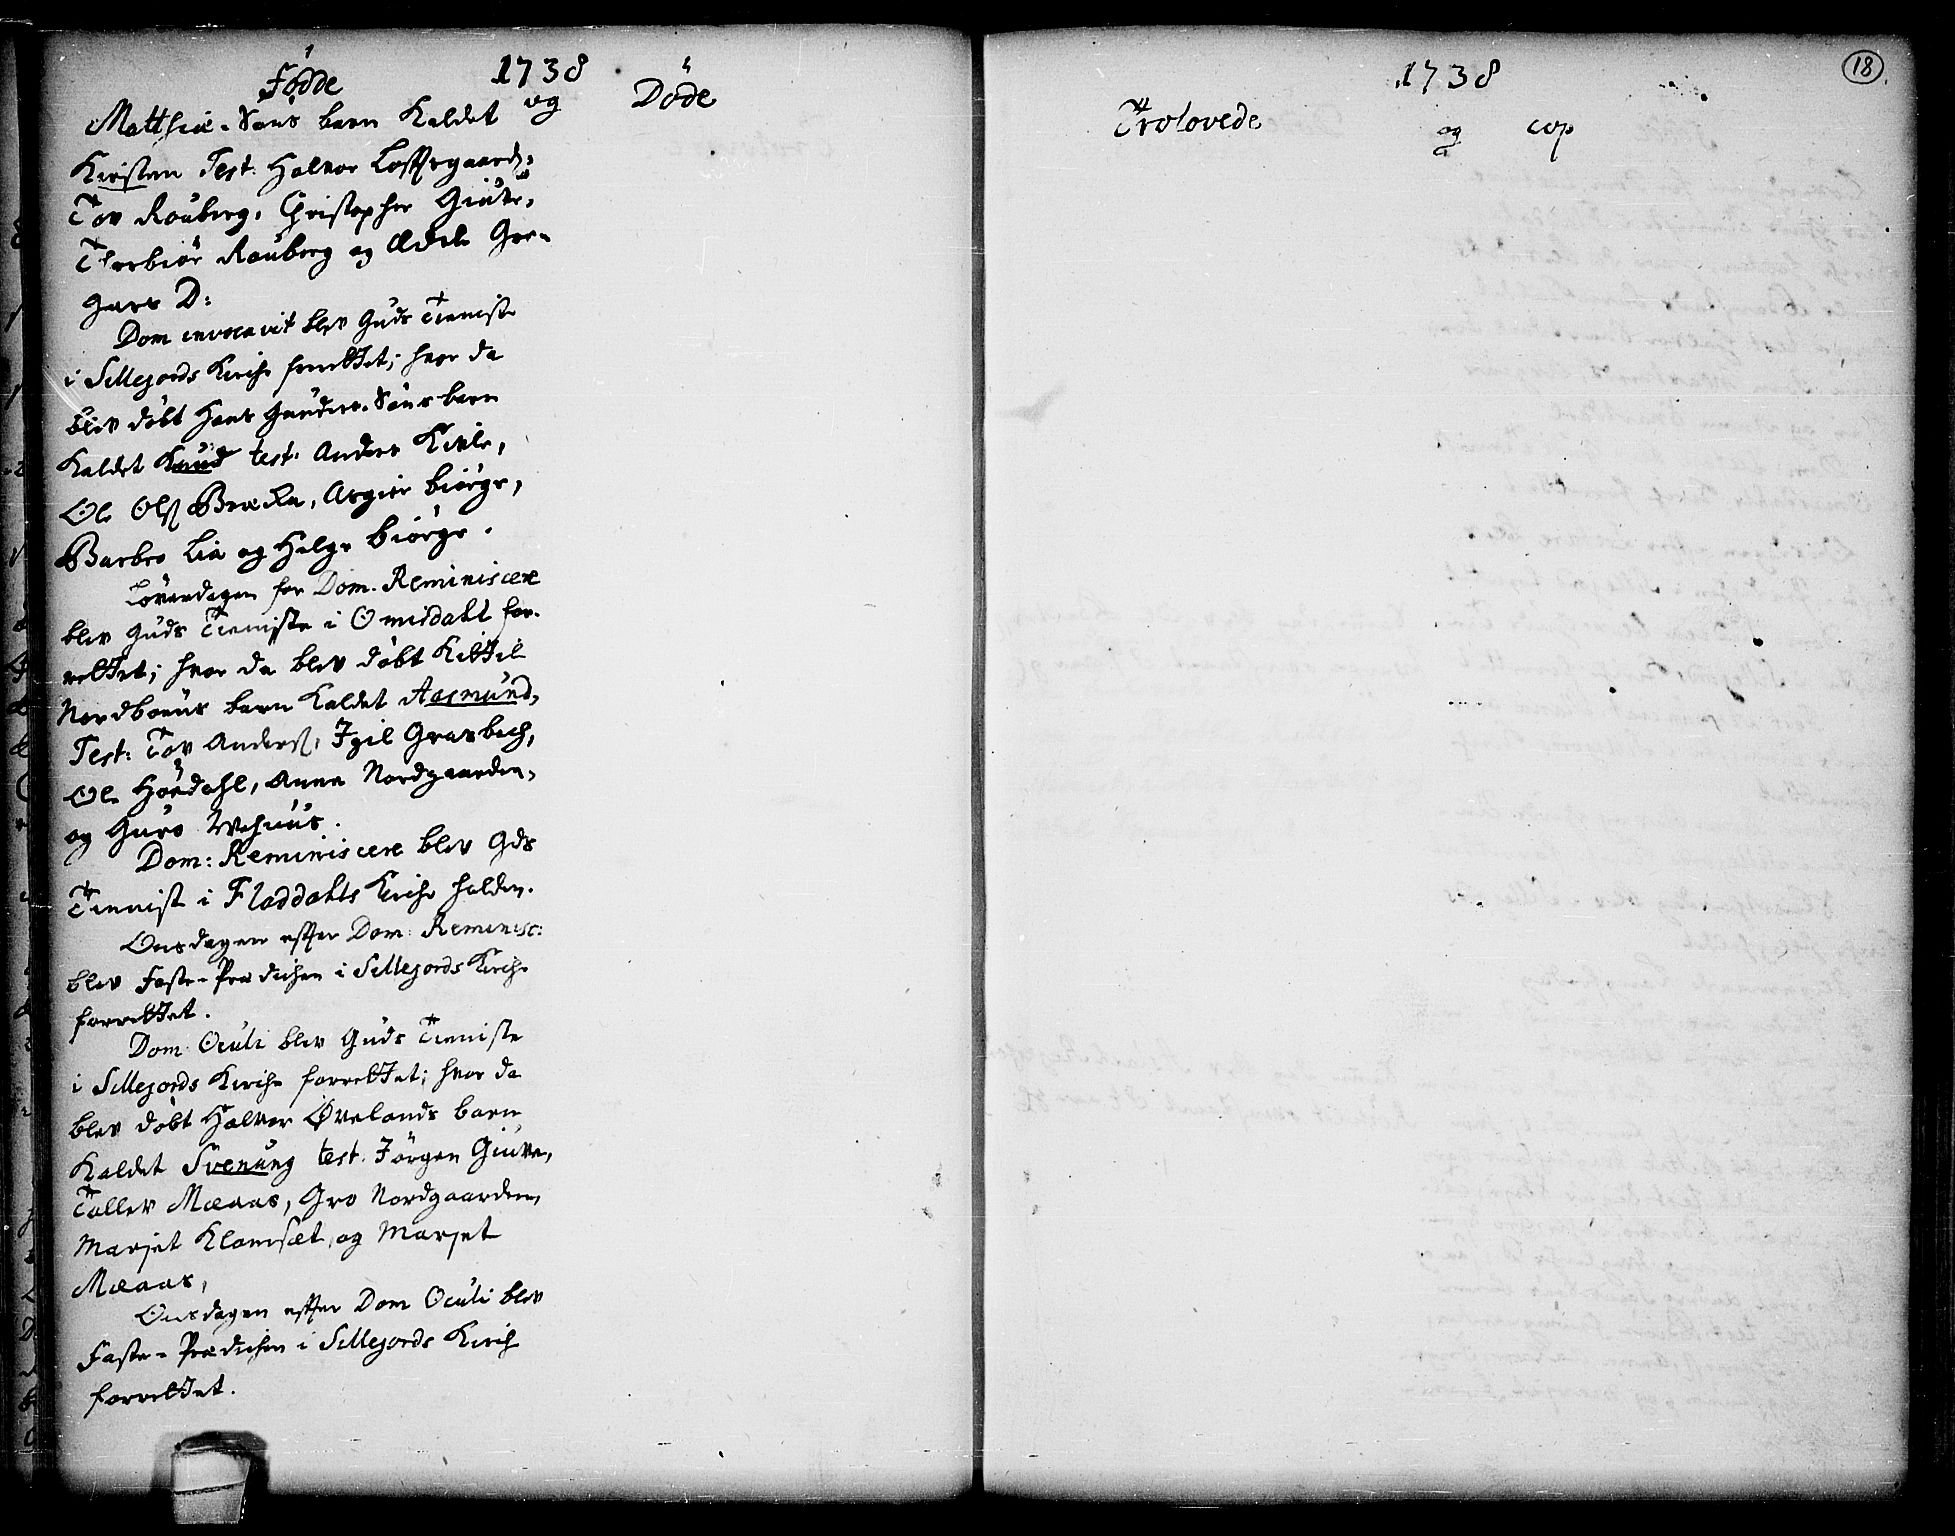 Fødde 1738 og Døde
Matthiæ-Søns barn kaldet
Kirsten Test: Halvor Lofftsgaard,
Tov Rouberg, Christopher Giuve,
Thorbiør Rouberg og Ædel Gre-
gars D:
Dom invocavit blev Guds Tieniste
i Sillejords Kirche forrettet; hvor da
blev døbt Hans Gunders-Søns barn
kaldet Knud test: Anders Kivle,
Ole Olß Brække, Asgier Biørge,
Barbro Lia og Helge Biørge.
Løverdagen for Dom. Reminiscere
blev Guds Tieniste i Omisdahl for-
rettet; hvor da blev døbt Kittil
Nordbøens barn kaldet Aasmund,
Test: Tov Anderß, Igil Grasbech,
Ole Høydahl, Anne Nordgaarden,
og Guro Wehuus.
Dom: Reminiscere blev Gds
Tienist i Fladdahls Kirche holden.
Onsdagen effter Dom: Reminisc:
blev Faste-Prædichen i Sillejords Kirche
forrettet.
Dom: Oculi blev Guds Tieniste
i Sillejords Kirche forrettet; hvor da
blev døbt Halvor Øvelands barn
kaldet Svenung test: Jørgen Giuve,
Tallev Mæaas, Gro Nordgaarden,
Marjet Klomset, og Marjet
Mæaas,
Onsdagen effter Dom Oculi blev
Faste-Prædichen i Sillejords Kirch
forrettet.
1738
18
Trolovede og cop